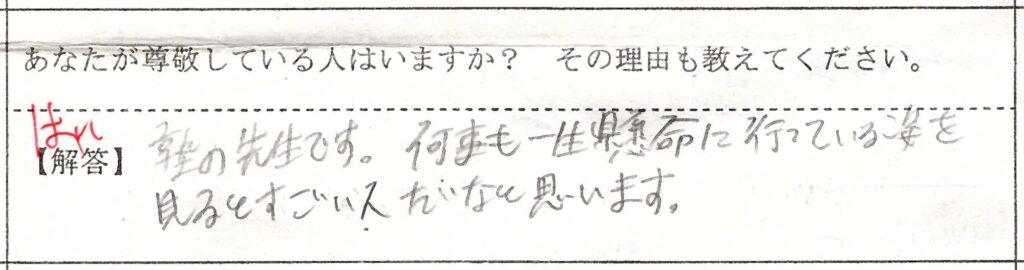 あなたが尊敬している人はいますか？　その理由も教えてください。
はれ
【解答】 塾の先生です。何事も一生懸命に行っている姿を
見るとすごい人だなと思います。